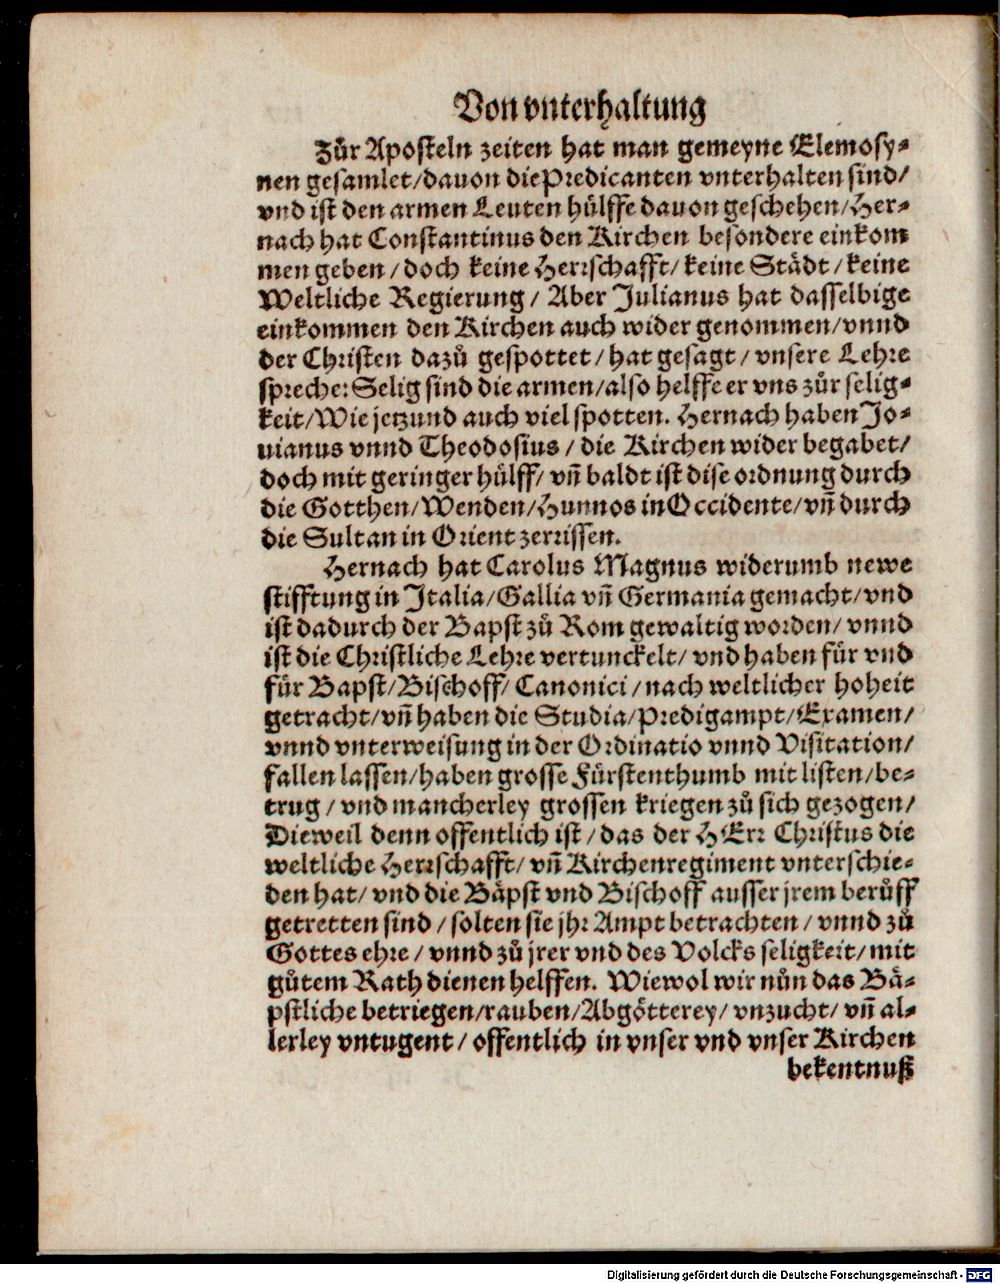 Von vnterhaltung
Zůr Aposteln zeiten hat man gemeyne Elemosy⸗
nen gesamlet/dauon die Predicanten vnterhalten sind/
vnd ist den armen Leuten hülffe dauon geschehen/Her⸗
nach hat Constantinus den Kirchen besondere einkom
men geben/doch keine Herrschafft/keine Städt/keine
Weltliche Regierung/ Aber Julianus hat dasselbige
einkommen den Kirchen auch wider genommen/vnnd
der Christen dazů gespottet/hat gesagt/vnsere Lehre
spreche: Selig sind die armen/also helffe er vns zůr selig⸗
keit/Wie jetzund auch viel spotten. Hernach haben Jo⸗
uianus vnnd Theodosius/die Kirchen wider begabet/
doch mit geringer hülff/vñ baldt ist dise ordnung durch
die Gotthen/Wenden/Hunnos in Occidente/vñ durch
die Sultan in Orient zerrissen.
Hernach hat Carolus Magnus widerumb newe
stifftung in Italia/Gallia vñ Germania gemacht/vnd
ist dadurch der Bapst zů Rom gewaltig worden/vnnd
ist die Christliche Lehre vertunckelt/vnd haben für vnd
für Bapst/Bischoff/Canonici/nach weltlicher hoheit
getracht/vñ haben die Studia/Predigampt/Examen/
vnnd vnterweisung in der Ordinatio vnnd Visitation/
fallen lassen/haben grosse Fürstenthumb mit listen/be⸗
trug/vnd mancherley grossen kriegen zů sich gezogen/
Dieweil denn offentlich ist/das der HErr Christus die
weltliche Herrschafft/vñ Kirchenregiment vnterschie⸗
den hat/vnd die Bäpst vnd Bischoff ausser jrem berůff
getretten sind/solten sie jhr Ampt betrachten/vnnd zů
Gottes ehre/vnnd zů jrer vnd des Volcks seligkeit/mit
gůtem Rath dienen helffen. Wiewol wir nůn das Bä⸗
pstliche betriegen/rauben/Abgötterey/vnzucht/vñ al⸗
lerley vntugent/offentlich in vnser vnd vnser Kirchen
bekentnuß
Digitalisierung gefördert durch die Deutsche Forschungsgemeinschaft - DFG